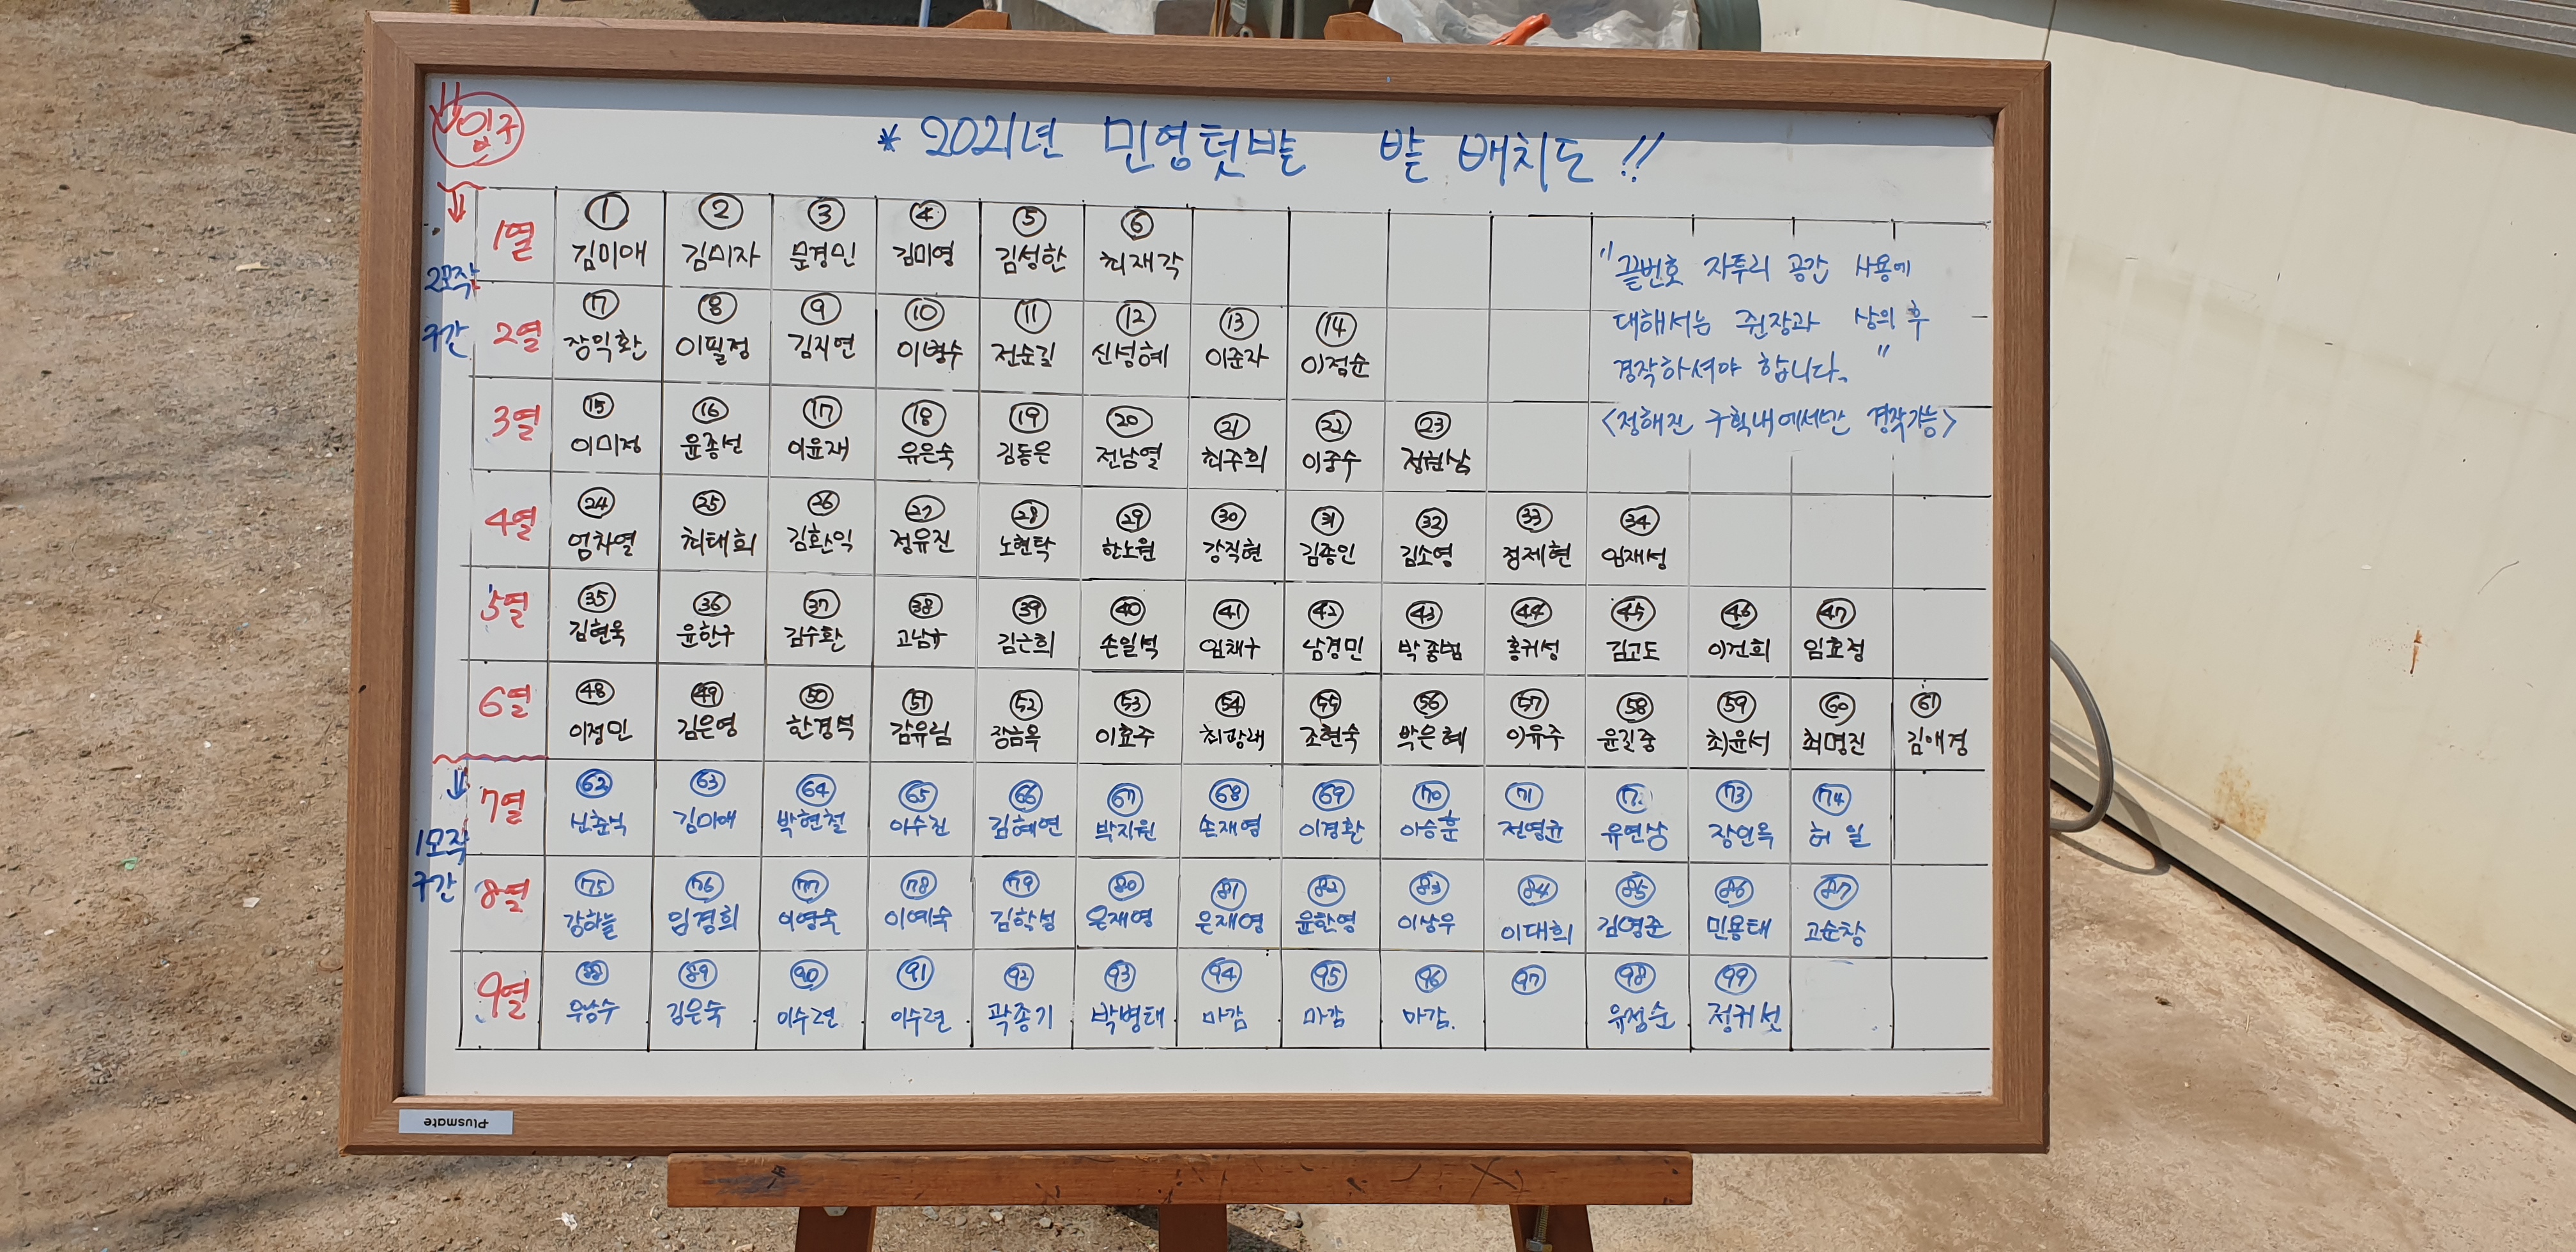 입구
* 2021년 민영텃밭 밭 배치도!!
2모작 구간
1열 ① ② ③ ④ ⑤ ⑥
김미애 김미자 문경민 김미영 김성한 최재각
"끝번호 자투리 공간 사용에
대해서는 쥔장과 상의 후
경작하셔야 합니다."
<정해진 구획내에서만 경작가능>
2열 ⑦ ⑧ ⑨ ⑩ ⑪ ⑫ ⑬ ⑭
장익환 이필정 김지연 이병수 전순길 신성혜 이준자 이점순
3열 ⑮ ⑯ ⑰ ⑱ ⑲ ⑳ ㉑ ㉒ ㉓
이미정 윤종선 이윤재 유은숙 김동은 전남열 최주희 이중수 정현남
4열 ㉔ ㉕ ㉖ ㉗ ㉘ ㉙ ㉚ ㉛ ㉜ ㉝ ㉞
엄차열 최태희 김환익 정유진 노현탁 한노원 강직현 김종인 김소영 정제현 임재성
5열 ㉟ ㊱ ㊲ ㊳ ㊴ ㊵ ㊶ ㊷ ㊸ ㊹ ㊺ ㊻ ㊼
김현욱 윤한구 김수환 고남규 김근희 손일석 임채구 남경민 박종범 홍귀성 김고도 이건희 임효정
6열 ㊽ ㊾ ㊿ 51 52 53 54 55 56 57 58 59 60 61
이정민 김은영 한경석 감유림 장금옥 이효주 최광래 조현숙 박은혜 이유주 윤길중 최윤서 최명진 김애경
1모작 구간
7열 62 63 64 65 66 67 68 69 70 71 72 73 74
신춘식 김미애 박현철 이수진 김혜연 박지원 손재영 이경환 이승훈 전영균 유연상 장인옥 허일
8열 75 76 77 78 79 80 81 82 83 84 85 86 87
강하늘 임경희 이영숙 이예숙 김학성 은재영 은재영 윤한영 이상우 이대희 김영준 민용태 고순창
9열 88 89 90 91 92 93 94 95 96 97 98 99
우승수 김은숙 이수련 이수련 곽종기 박병태 마감 마감 마감. 유정순 정귀선
Plusmate